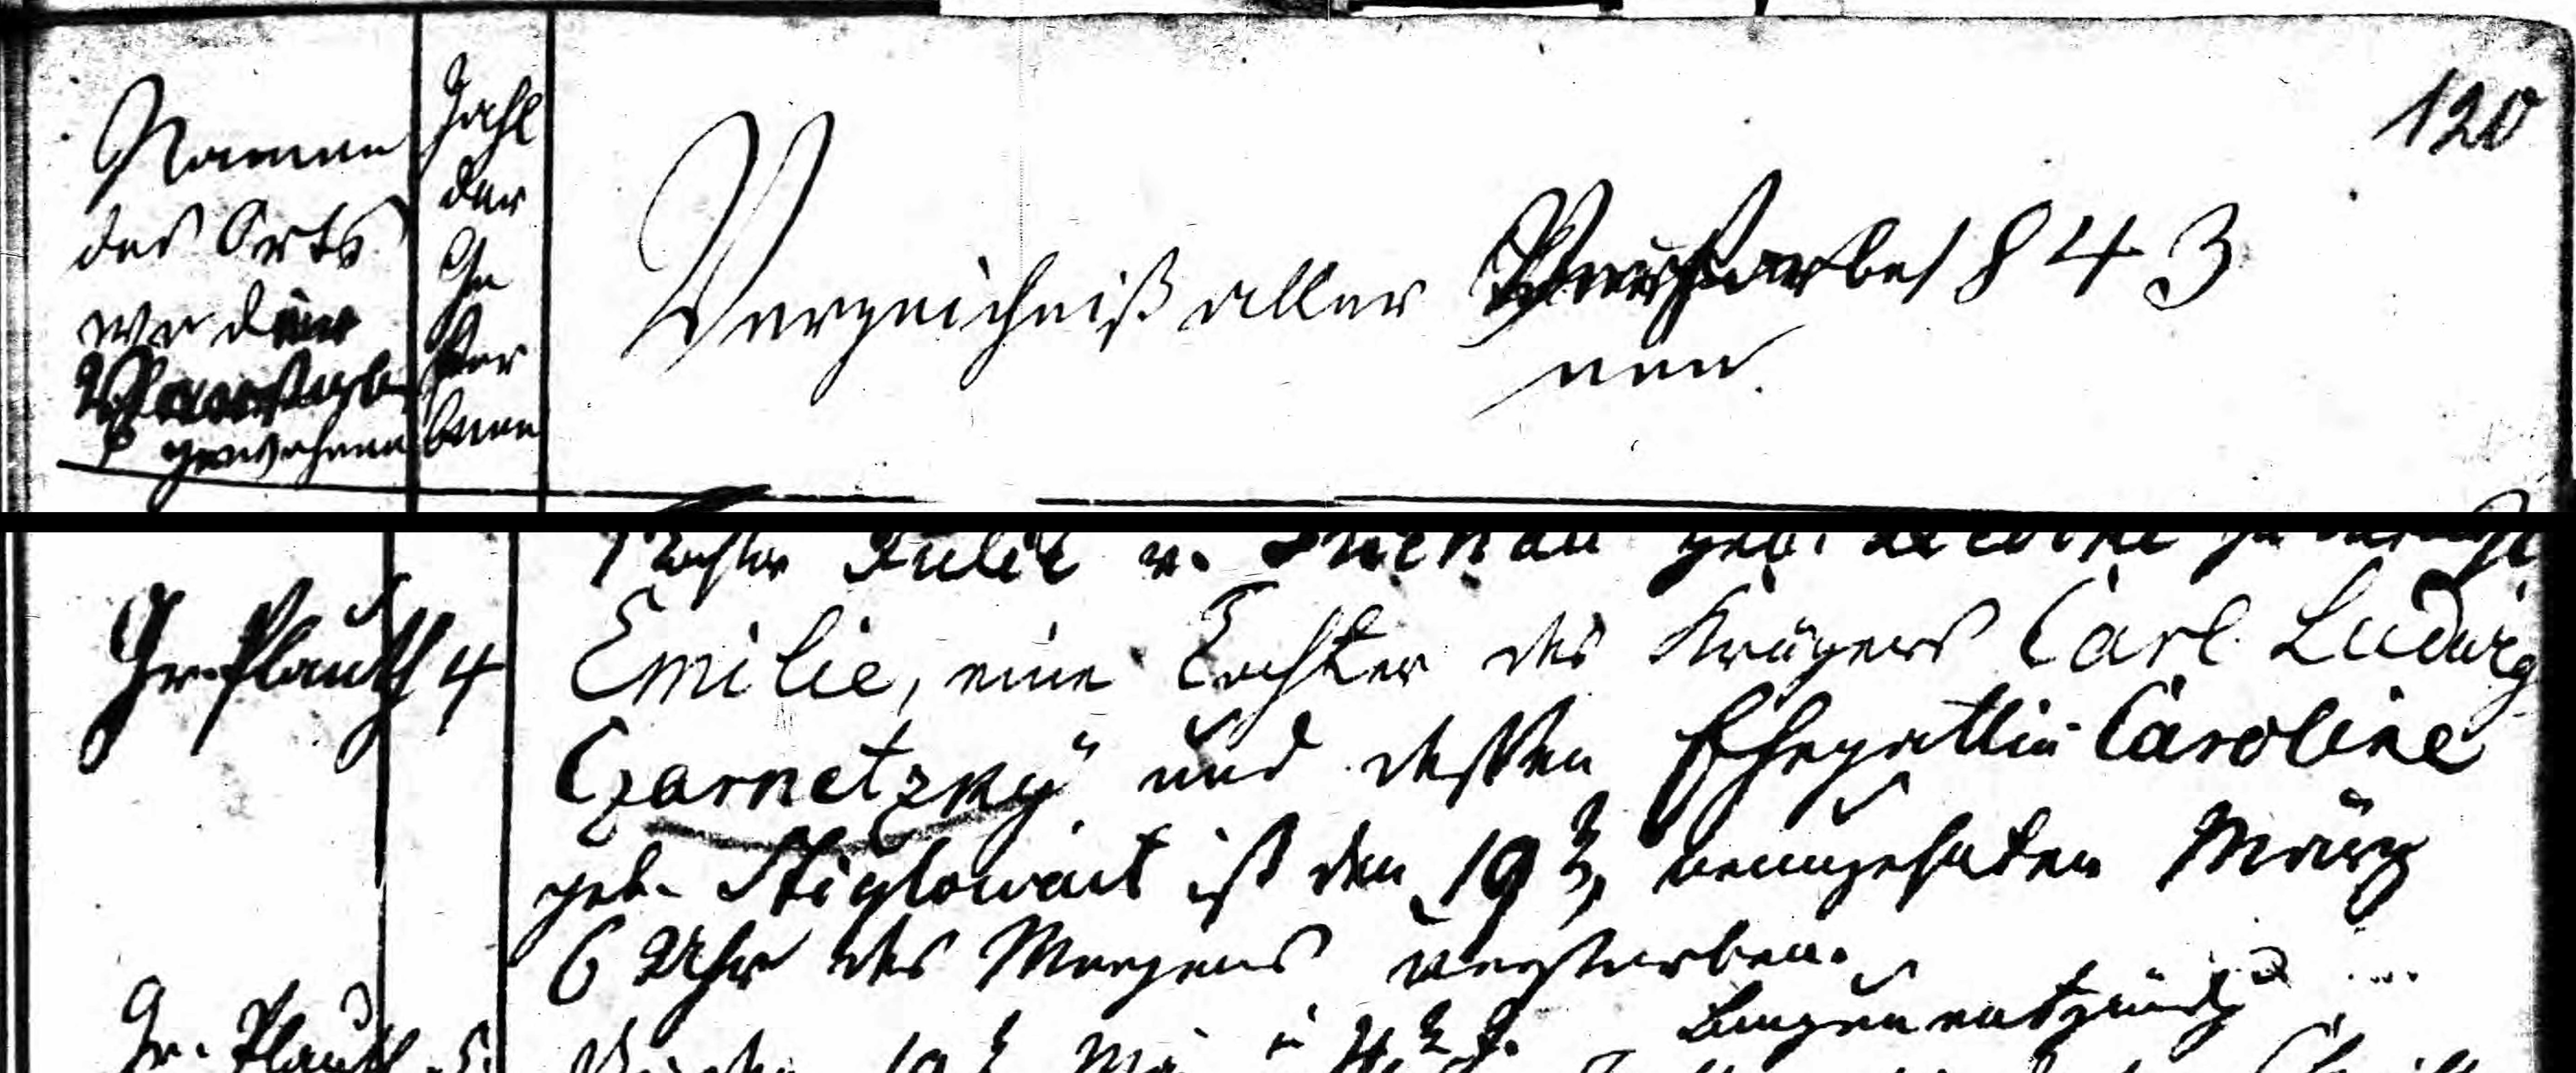 120
Namen
des Orts
wo der
Verstorbe
gewohnen
Zahl
der
Ge
stor
benen
Verzeichniß aller Verstorbe 1843
nen.
Tochter Julie v. geb.
Gr. Plauth 4 Emilie, eine Tochter des Krügers Carl Ludwig
Czarnetzky und dessen Ehegattin Caroline
geb. Stiglowait ist den 19t, neunzehnten März
6 Uhr des Morgens verstorben.
Lungenentzünd
Gr. Plauth 5.